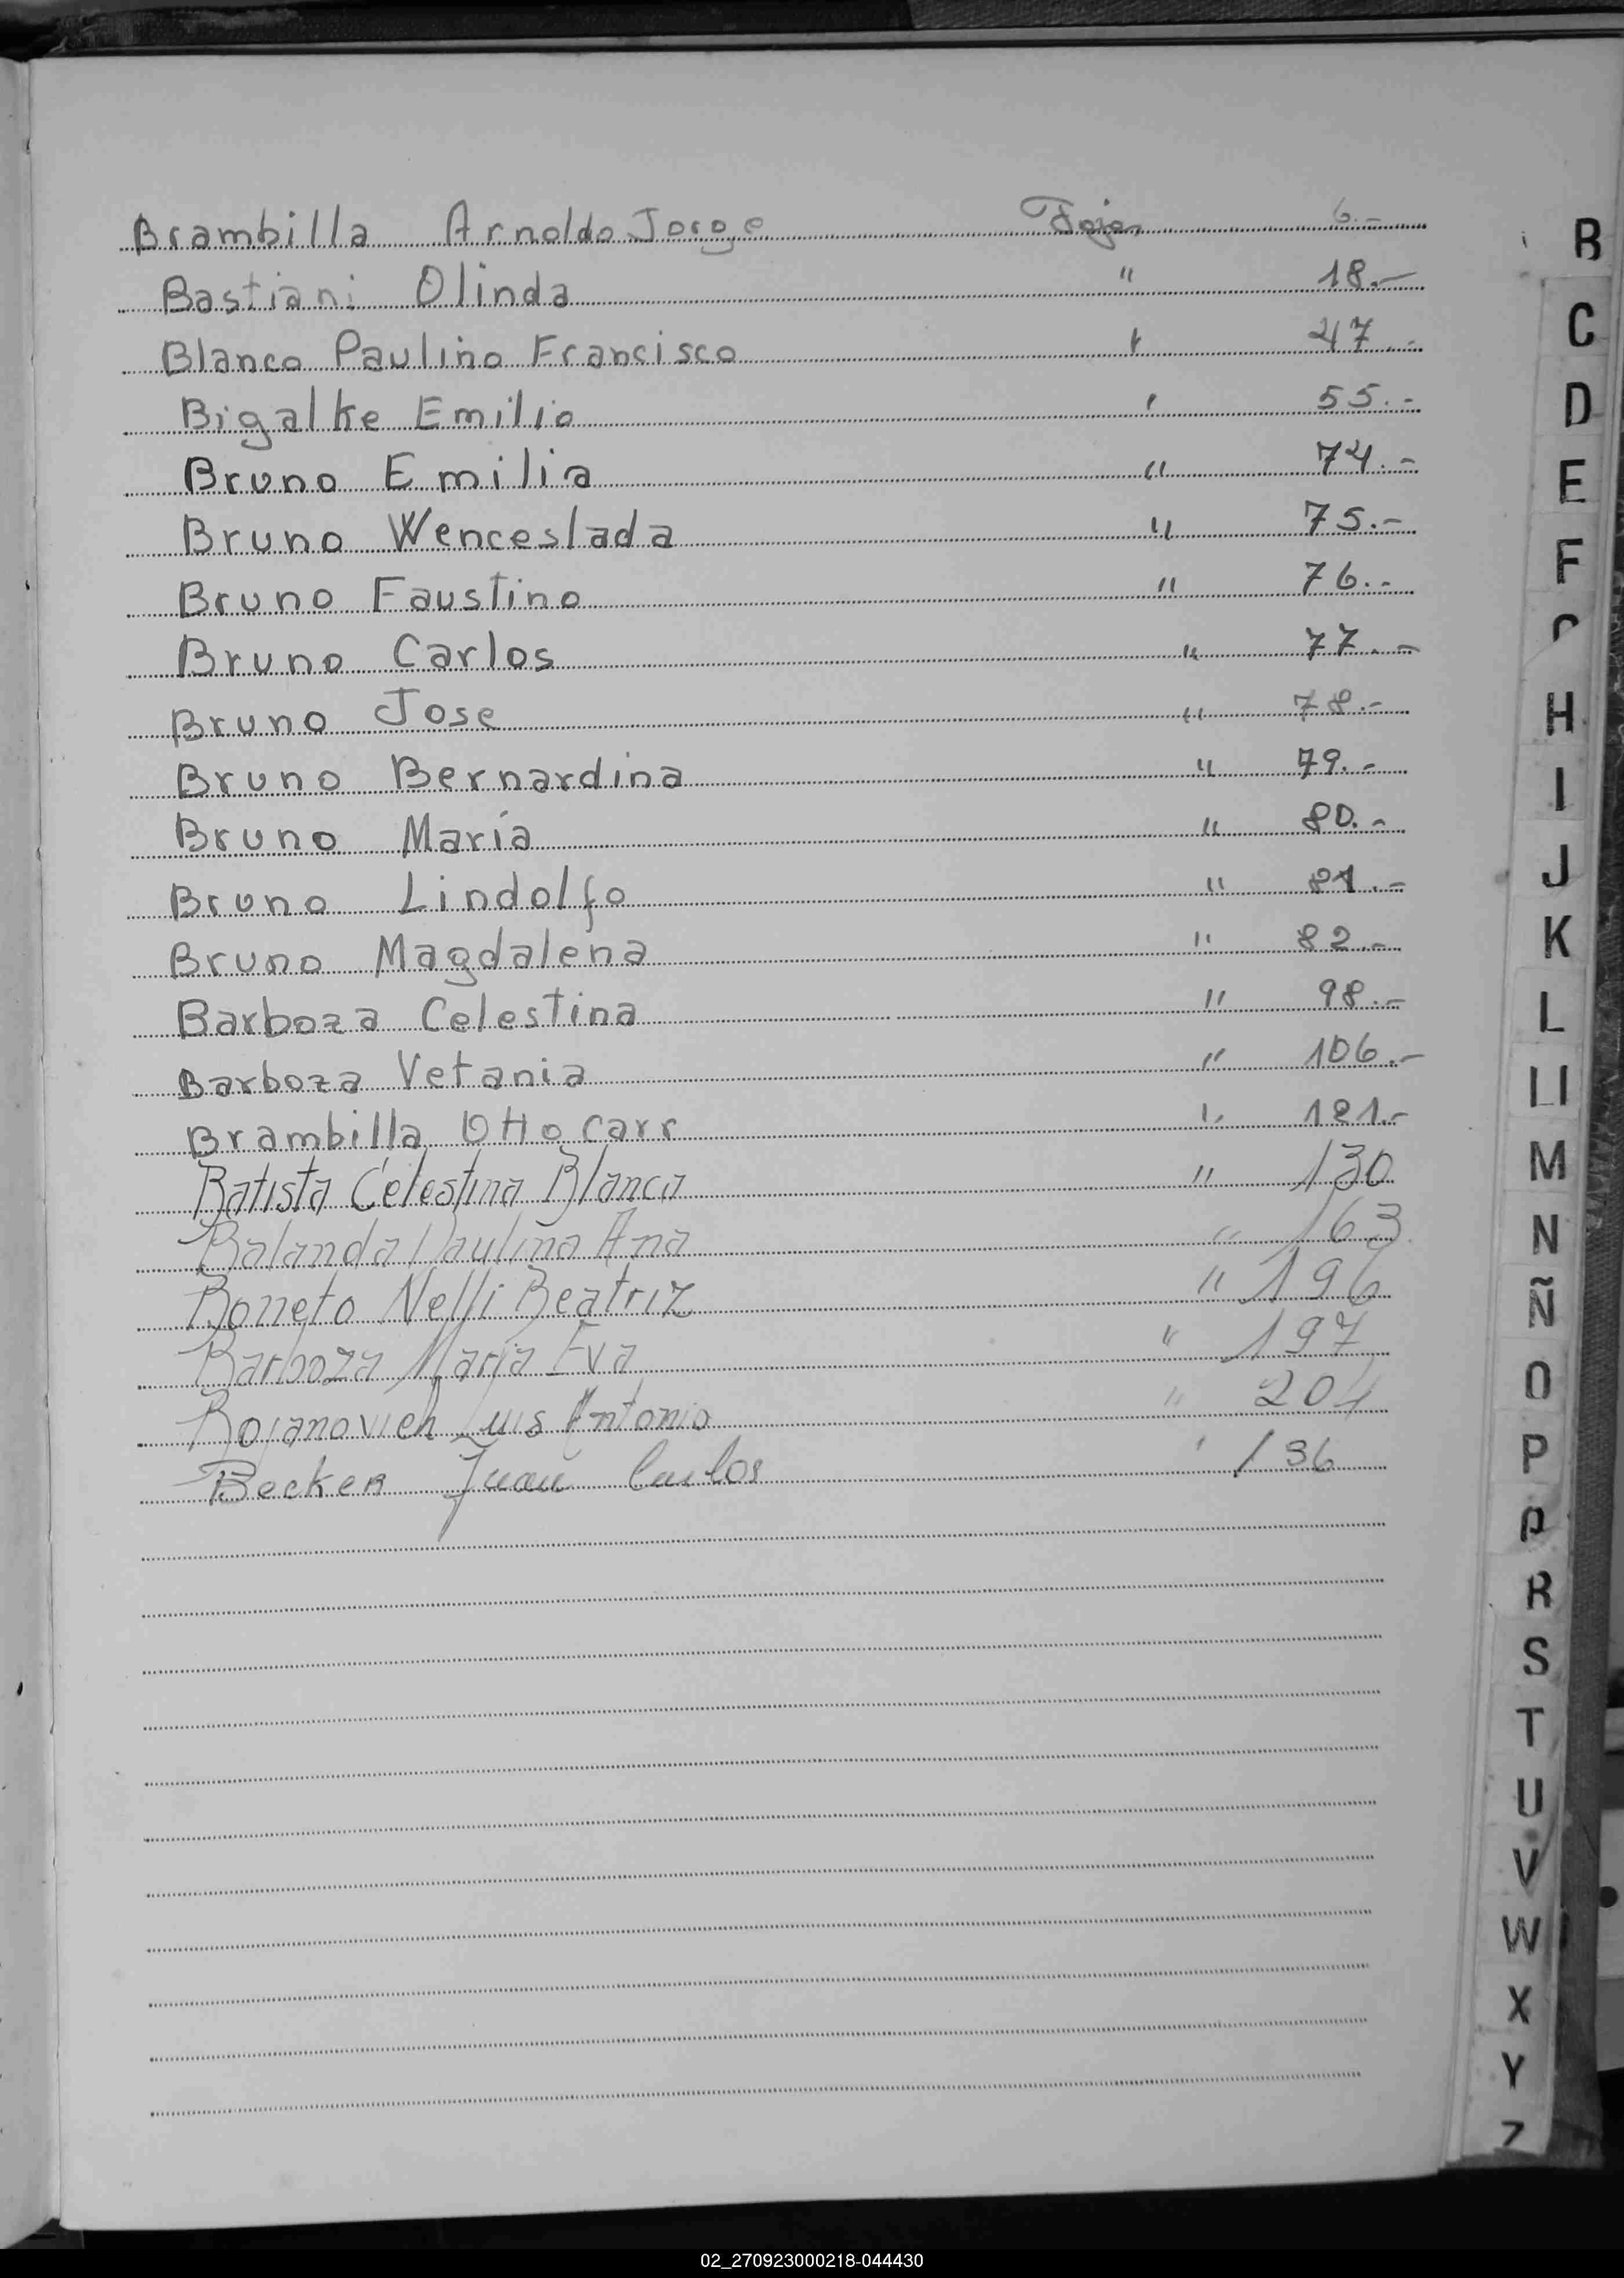 Brambilla Arnoldo Jorge Fojas 6.-
Bastiani Olinda " 18.-
Blanco Paulino Francisco " 47.-
Bigalke Emilio " 55.-
Bruno Emilia " 74.-
Bruno Wenceslada " 75.-
Bruno Faustino " 76.-
Bruno Carlos " 77.-
Bruno Jose " 78.-
Bruno Bernardina " 79.-
Bruno María " 80.-
Bruno Lindolfo " 81.-
Bruno Magdalena " 82.-
Barboza Celestina " 98.-
Barboza Vetania " 106.-
Brambilla Otto Carr "
Batista Celestina Blanca " 130
Balanda Paulina Ana " 163
Borreto Nelli Beatriz " 196
Barboza Maria Eva " 197
Bojanovich Luis Antonio " 204
Becker Juan Carlos " 136
B
C
D
E
F
H
I
J
K
L
Ll
M
N
Ñ
O
P
R
S
T
U
V
W
X
Y
Z
02_270923000218-044430